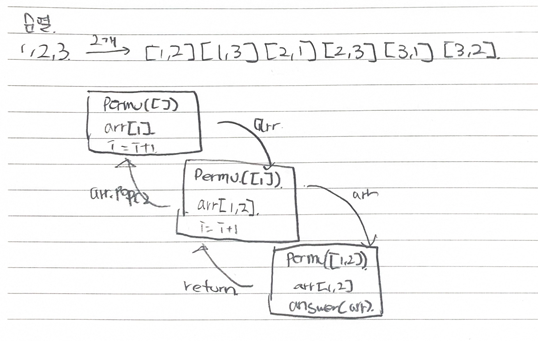 순열
1,2,3 2개 → [1,2] [1,3] [2,1] [2,3] [3,1] [3,2]
Permu([])
arr[1]
i = i+1
arr
Permu([1])
arr[1,2]
i = i+1
arr.pop()
arr
Permu([1,2])
arr[1,2]
answer(arr)
return